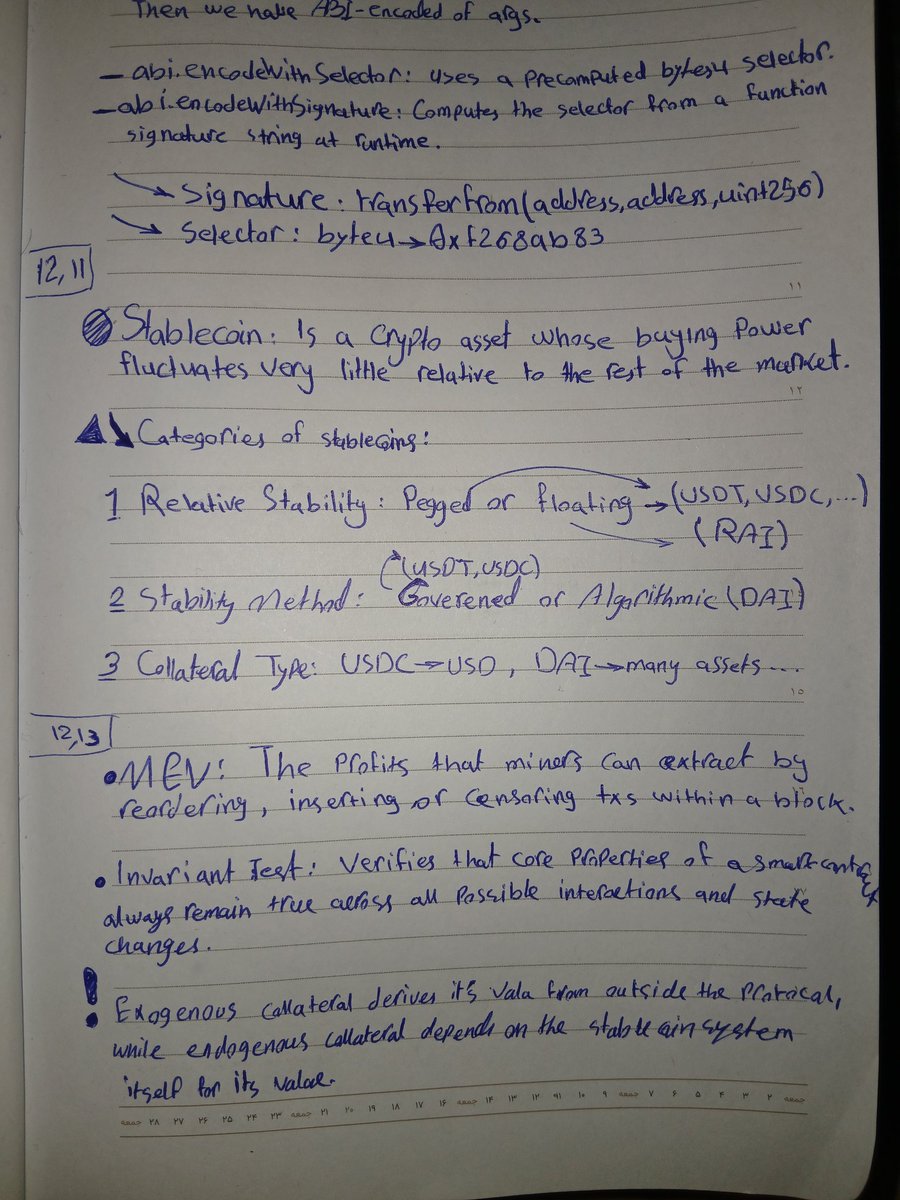 Then we have ABI-encoded of args.
- abi.encodeWithSelector: uses a precomputed bytes4 selector.
- abi.encodeWithSignature: Computes the selector from a function
signature string at runtime.
Signature: transferfrom(address,address,uint256)
Selector: byte4→0xf268ab83
12,11
۱۱
Stablecoin: Is a crypto asset whose buying Power
fluctuates very little relative to the rest of the market.
۱۲
Categories of stablecoins:
1 Relative Stability: Pegged or floating → (USDT, USDC, ...)
(RAI)
(USDT, USDC)
2 Stability Method: Goverened or Algorithmic (DAI)
3 Collateral Type: USDC→USD, DAI→many assets...
۱۵
12,13
• MEV: The Profits that miners can extract by
reordering, inserting or censoring txs within a block.
• Invariant Test: Verifies that core properties of a smart contract
always remain true across all Possible interactions and state
changes.
! Exogenous collateral derives it's vala from outside the Protocal,
while endogenous collateral depends on the stablecoin system
itself for its value.
جمعه ۲ ۳ ۴ ۵ ۶ ۷ جمعه ۹ ۱۰ ۱۱ ۱۲ ۱۳ ۱۴ جمعه ۱۶ ۱۷ ۱۸ ۱۹ ۲۰ ۲۱ جمعه ۲۳ ۲۴ ۲۵ ۲۶ ۲۷ ۲۸ جمعه